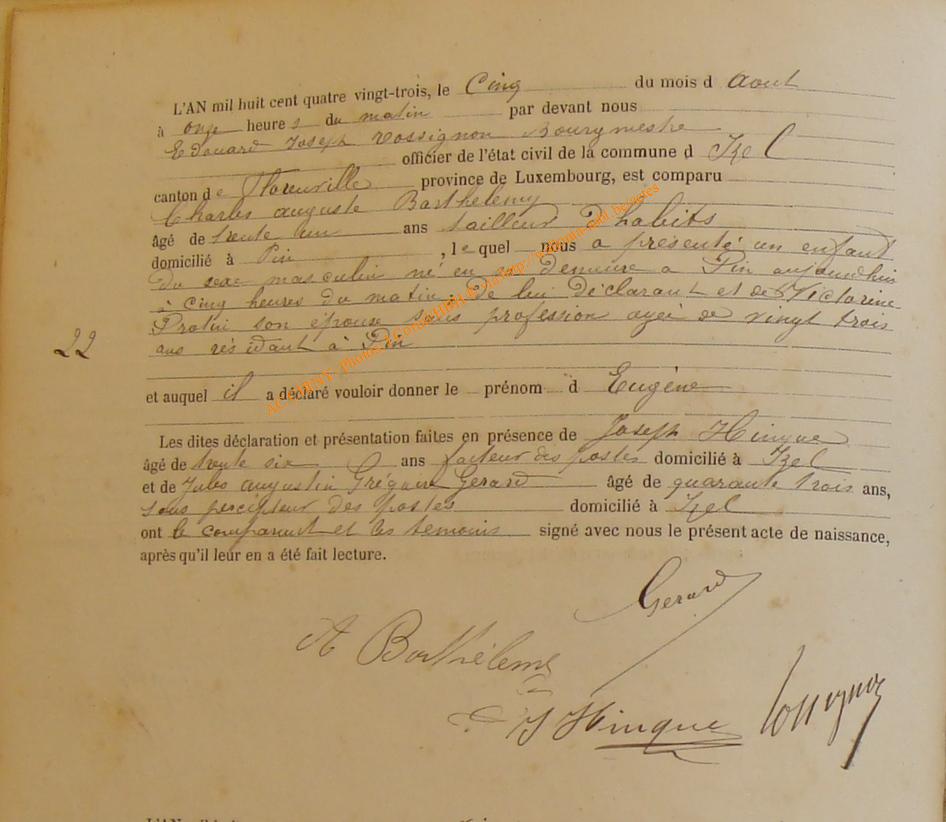 L'AN mil huit cent quatre vingt-trois, le Cinq du mois d Aout
à onze heures du matin par devant nous
Edouard Joseph Rossignon Bourgmestre
officier de l'état civil de la commune d Izel
canton de Florenville province de Luxembourg, est comparu
Charles Auguste Barthelemy
âgé de trente un ans tailleur d'habits
domicilié à Pin, lequel nous a présenté un enfant
du sexe masculin né en sa demeure à Pin aujourdhui
à cinq heures du matin, de lui déclarant et de Victorine
22
son épouse sans profession agée de vingt trois
ans résidant à Pin
et auquel il a déclaré vouloir donner le prénom d Eugène
Les dites déclaration et présentation faites en présence de Joseph Hinque
âgé de trente six ans facteur des postes domicilié à Izel
et de Jules Augustin Gérard âgé de quarante trois ans,
sous percepteur des postes domicilié à Izel
ont le comparant et les témoins signé avec nous le présent acte de naissance,
après qu'il leur en a été fait lecture.
Gerard
A Barthélemy
J Hinque
Rossignon